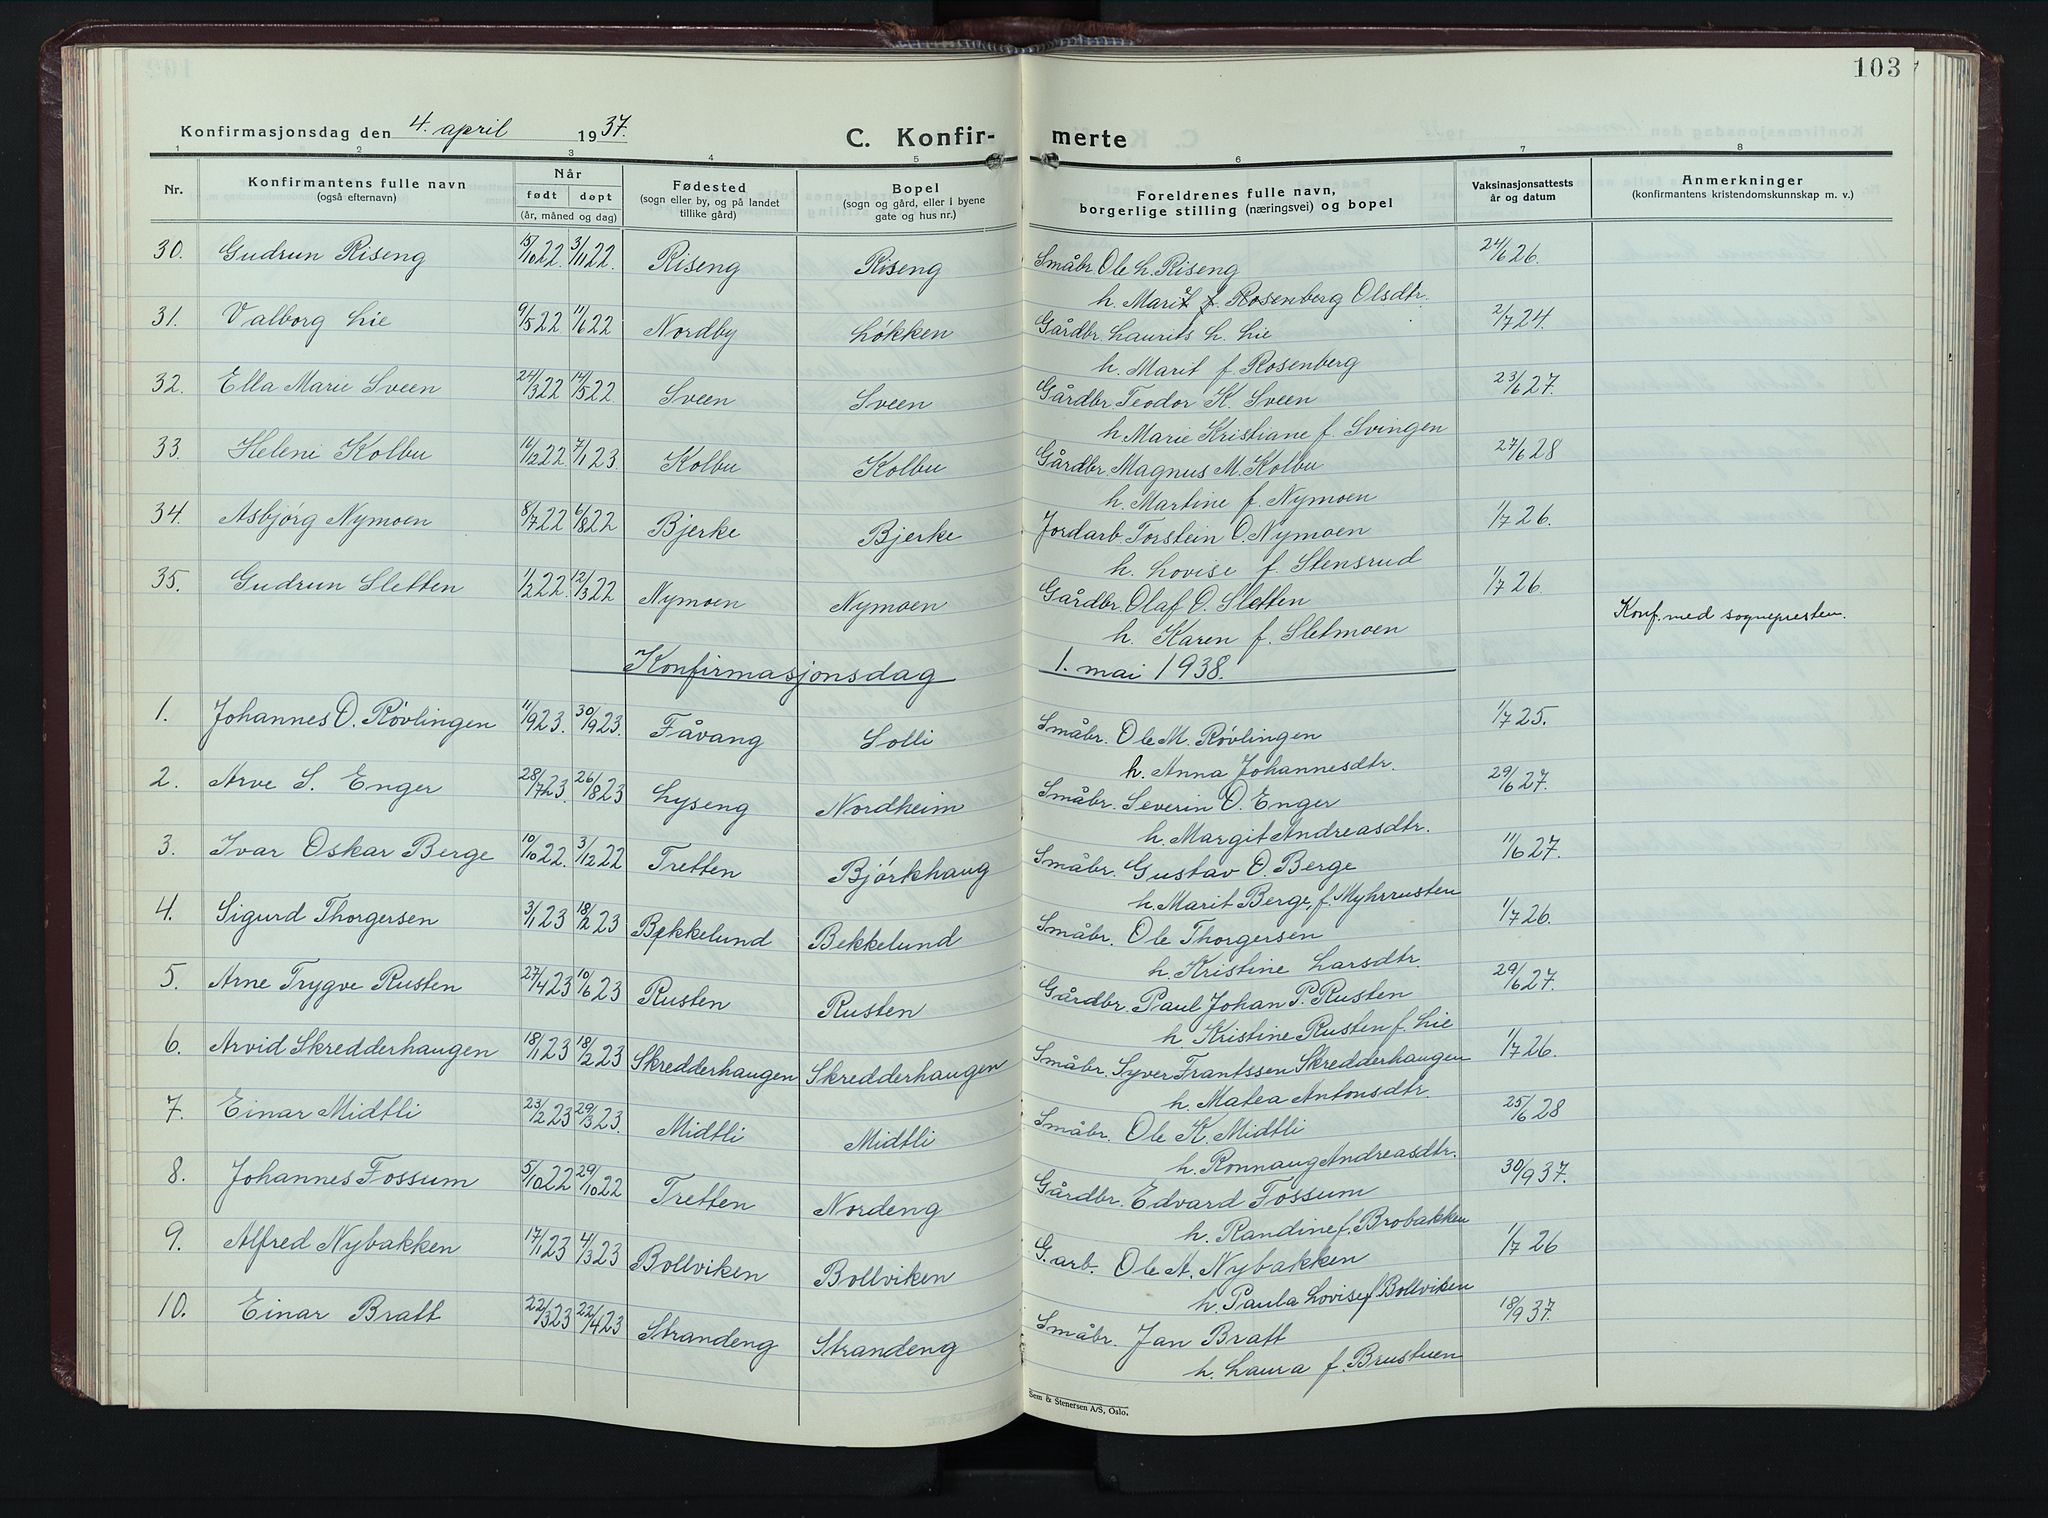 103
Konfirmasjonsdag den 4. april 1937.
C. Konfirmerte
1 2 3 4 5 6 7 8
Nr. Konfirmantens fulle navn (også efternavn) Når født døpt (år, måned og dag) Fødested (sogn eller by, og på landet tillike gård) Bopel (sogn og gård, eller i byene gate og hus nr.) Foreldrenes fulle navn, borgerlige stilling (næringsvei) og bopel Vaksinasjonsattests år og datum Anmerkninger (konfirmantens kristendomskunnskap m. v.)
30. Gudrun Riseng 15/10 22. 3/11 22. Riseng Riseng Småbr. Ole L. Riseng 24/6 26.
h. Marit f. Rosenberg Olsdtr.
31. Valborg Lie 9/5 22 11/6 22 Nordby Løkken Gårdbr. Laurits L. Lie 2/7 24.
h. Marit f. Rosenberg
32. Ella Marie Sveen 24/3 22 14/5 22 Sveen Sveen Gårdbr. Teodor K. Sveen 23/6 27.
h. Marie Kristiane f. Svingen
33. Helene Kolbu 16/12 22 7/1 23. Kolbu Kolbu Gårdbr. Magnus M. Kolbu 27/6 28
h. Martine f. Nymoen
34. Asbjørg Nymoen 8/7 22 6/8 22 Bjerke Bjerke Jordarb. Torstein O. Nymoen 1/7 26.
h. Lovise f. Stensrud
35. Gudrun Sletten 1/2 22. 12/3 22 Nymoen Nymoen Gårdbr. Olaf O. Sletten 1/7 26. Konf. med sognepresten.
h. Karen f. Sletmoen
Konfirmasjonsdag 1. mai 1938.
1. Johannes O. Røvlingen 11/9 23. 30/9 23. Fåvang Solli Småbr. Ole M. Røvlingen 1/7 25.
h. Anna Johannesdtr.
2. Arve S. Enger 28/7 23. 26/8 23 Lyseng Nordheim Småbr. Severin O. Enger 29/6 27.
h. Margit Andreasdtr.
3. Ivar Oskar Berge 10/10 22. 3/12 22 Tretten Bjørkhaug Småbr. Gustav O. Berge 11/6 27.
h. Marit Berge, f. Myhrrusten
4. Sigurd Thorgersen 3/1 23 18/2 23 Bekkelund Bekkelund Småbr. Ole Thorgersen 1/7 26.
h. Kristine Larsdtr.
5. Arne Trygve Rusten 27/4 23 10/6 23 Rusten Rusten Gårdbr. Paul Johan P. Rusten 29/6 27.
h. Kristine Rusten f. Lie
6. Arvid Skredderhaugen 18/1 23 18/2 23 Skredderhaugen Skredderhaugen Småbr. Syver Frantssen Skredderhaugen 1/7 26.
h. Matea Antonsdtr.
7. Einar Midtli 23/2 23 29/3 23. Midtli Midtli Småbr. Ole K. Midtli 25/6 28
h. Ronnaug Andreasdtr.
8. Johannes Fossum 5/10 22 29/10 22 Tretten Nordeng Gårdbr. Edvard Fossum 30/9 37.
h. Randine f. Brobakken
9. Alfred Nybakken 17/1 23 4/3 23 Bollviken Bollviken G. arb. Ole A. Nybakken 1/7 26
h. Paula Lovise f Bollviken
10. Einar Bratt 22/3 23 22/4 23 Strandeng Strandeng Småbr. Jan Bratt 18/9 37.
h. Laura f. Brustuen
Sem & Stenersen A/S, Oslo.